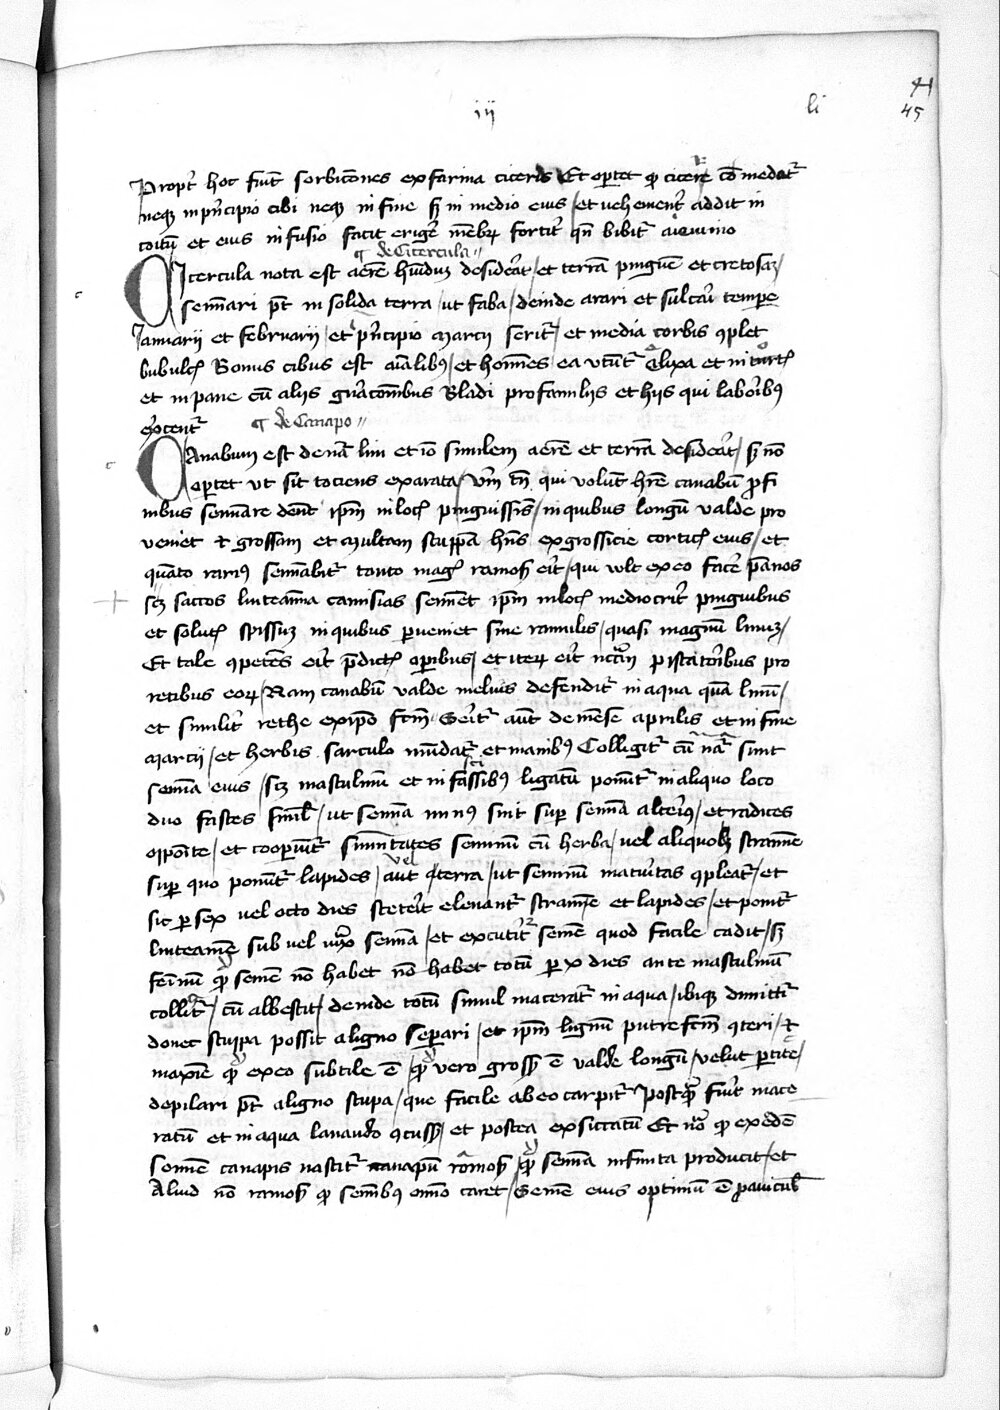 iij li 45
Propt̄ hoc fiūt sorbic̄ones ex farina ciceris Et oportet q̄ cicere cōmedat̄
neqȝ in pn̄cipio cibi neqȝ in fine sȝ in medio eius / et vehement̄ addit in
coitū et eius infusio facit eriḡe mēbrū fortit̄ qn̄ bibit̄ a ieiunio
¶ de Cicercula //
Cicercula nota est aerē hūidūȝ desiderat / et terrā pinguē et cretosaȝ /
semīari pt̄ in solida terra / ut faba / deinde arari et sulcari tempe
Januarii et februarii / et pn̄cipio marcii serit̄ / et media corbis ꝯplet
bubulcȝ Bonus cibus est aīalibȝ / et hoīnes ea utūt̄ elixa et in
et in pane cū aliis grācōnibus Bladi pro familiis et hiis qui laboribȝ
exercent̄
¶ de Canapo //
Canabum est de nā lini et iō similem aerē et terrā desiderat / sȝ nō
oportet ut sit tociens exarata / Vm̄ tn̄ qui volūt hr̄e canabū p fi
nibus semīare dent ipm̄ in locȝ pinguissis / in quibus longū valde pro
veniet ⁊ grossam et multam stuppā hn̄s ex grossicie corticȝ eius / et
quāto rariȝ semīabit̄ tanto magȝ ramosȝ erit / qui vlt ex eo facere pānos
sȝ saccos linteamīa camisias seminet ipm̄ in locȝ mediocrit̄ pinguibus
et solutȝ spissuȝ in quibus perveniet sine ramulis / quasi magnū linuȝ /
Et tale ꝯpetēs erit p̄dictȝ operibus / et iterȝ erit piscatoribus pro
retibus eoȝ / Nam canabū valde melius defendit̄ in aqua quā linū /
et similit̄ rethe ex ipo fctm̄ Serit̄ aūt de mēse aprilis et in fine
marcii / et herbis sarculo mūdat̄ et manibȝ Colligit̄ cū nat̄ sunt
semīa eius / sȝ masculinū et in fassibȝ ligatū ponit̄ in aliquo loco
duo fasces simul / ut semīa unȝ sint sup semīa alteriȝ / et radices
oppoite / et cooperiūt̄ sumītates seminū cū herba / vel aliquobȝ stramine
sup quo ponūt̄ lapides / aut vel terra / ut seminū maturitas ꝯpleat̄ / et
sic p sex vel octo dies steterit elevant̄ stramīe et lapides / et ponit̄
linteamē sub vel iuxa semīa / et excutit̄ semē quod facile cadit / sȝ
femīnū qȝ semē nō habet nō habet totū p x dies ante masculinū
collit̄ / cū albescit / deinde totū simul macerat̄ in aqua / ibiqȝ dimittit̄
donec stuppa possit a ligno separi / et ipm̄ lignū putrefctm̄ ꝯteri / ⁊
maxīe qȝ ex eo subtile ē / qȝ vero grossȝ ē valde longū / velut pertice /
depilari pt̄ a ligno stupa / que facile ab eo carpit̄ Postqȝ fuit̄ mace
ratū et in aqua lavando ꝯcussȝ / et postea exsiccatū Et no q̄ ex edē
semīe canapis nascit̄ canapū ramosȝ / qȝ semīa infinita producit / et
Aliud nō ramosȝ q̄ semībȝ omīo caret / Semē eius optimū ē p avicul